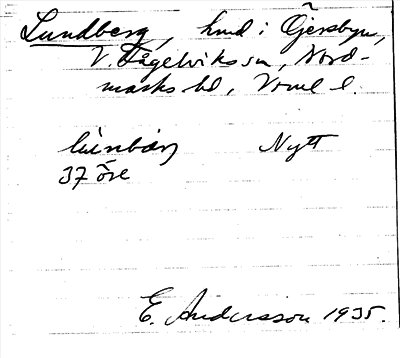 Lundberg, hmd i Öjersbyn,
V. Fågelviks sn, Nord-
marks hd, Vrml l.
Nytt
37 öre
E. Andersson 1935.